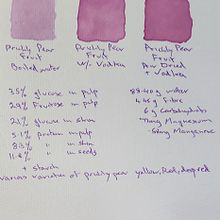 Prickly Pear Fruit Boiled water
Prickly Pear Fruit W/- Vodka
Prickly Pear Fruit Air Dried + Vodka
35% glucose in pulp
29% Fructose in pulp
21% glucose in skin
5.1% protein in pulp
8.3% " in skin
11.8% " in seeds
+ starch
88.40g water
4.45g Fibre
6g Carbohydrates
79mg Magnesium
various varieties of prickly pear yellow, Red, deep red